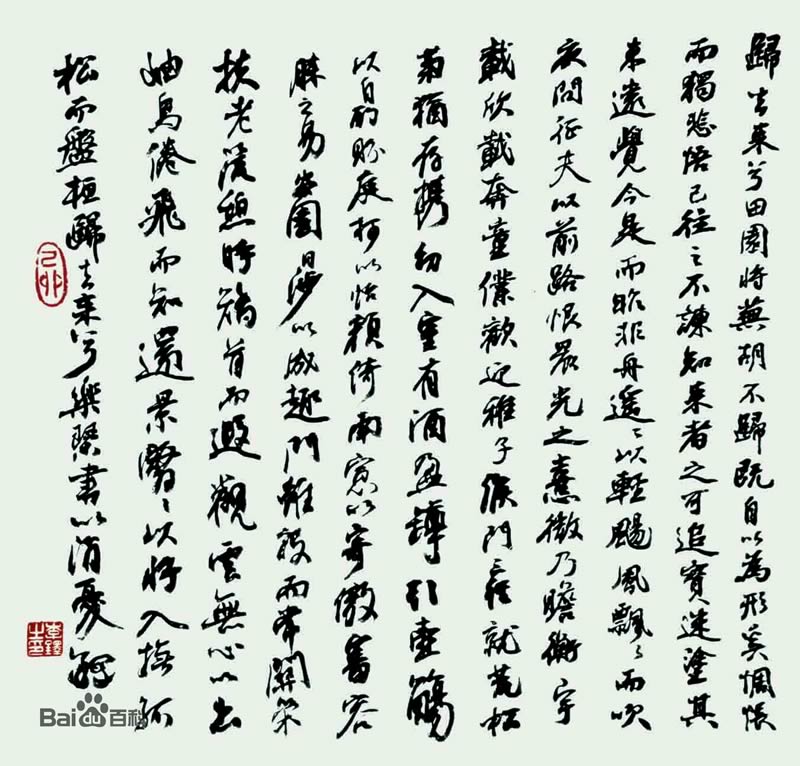 歸去来兮田園將蕪胡不歸既自以為形奚惆悵
而獨悲悟已往之不諫知来者之可追實迷塗其
未遠覺今是而昨非舟遥〻以輕颺風飄〻而吹
衣問征夫以前路恨晨光之熹微乃瞻衡宇
載欣載奔童僕歡迎稚子候門三径就荒松
菊猶存携幼入室有酒盈罇引壺觴
以自酌眄庭柯以怡顔倚南窓以寄傲審容
膝之易安園日涉以成趣門雖設而常關策
扶老流憩時矯首而遐觀雲無心以出
岫鳥倦飛而知還景翳〻以將入撫孤
松而盤桓歸去来兮樂琴書以消憂
己卯
Bai百科